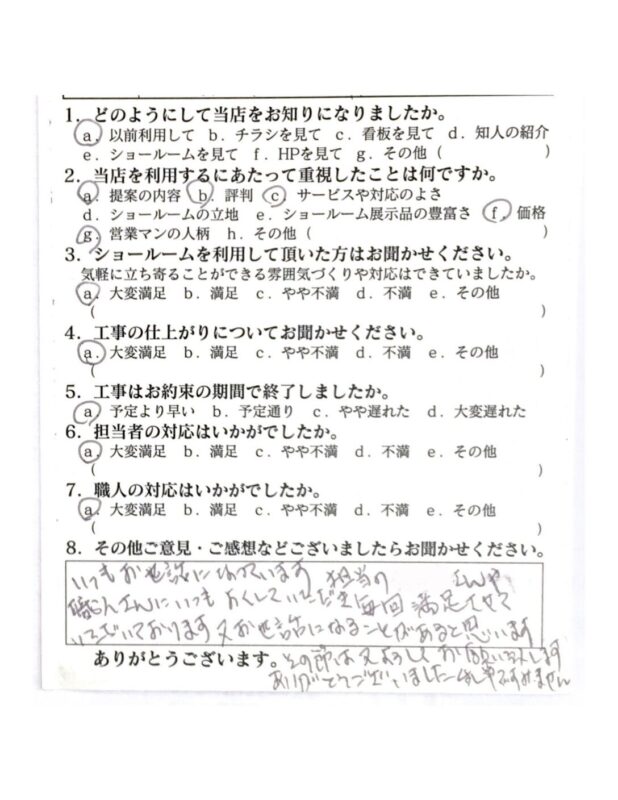 1．どのようにして当店をお知りになりましたか。
a．以前利用して b．チラシを見て c．看板を見て d．知人の紹介
e．ショールームを見て f．HPを見て g．その他（ ）
2．当店を利用するにあたって重視したことは何ですか。
a．提案の内容 b．評判 c．サービスや対応のよさ
d．ショールームの立地 e．ショールーム展示品の豊富さ f．価格
g．営業マンの人柄 h．その他（ ）
3．ショールームを利用して頂いた方はお聞かせください。
気軽に立ち寄ることができる雰囲気づくりや対応はできていましたか。
a．大変満足 b．満足 c．やや不満 d．不満 e．その他
（ ）
4．工事の仕上がりについてお聞かせください。
a．大変満足 b．満足 c．やや不満 d．不満 e．その他
（ ）
5．工事はお約束の期間で終了しましたか。
a．予定より早い b．予定通り c．やや遅れた d．大変遅れた
6．担当者の対応はいかがでしたか。
a．大変満足 b．満足 c．やや不満 d．不満 e．その他
（ ）
7．職人の対応はいかがでしたか。
a．大変満足 b．満足 c．やや不満 d．不満 e．その他
（ ）
8．その他ご意見・ご感想などございましたらお聞かせください。
いつもお世話になっています 担当の さんや
職人さんにいつもよくしていただき毎回満足させて
いただいております 又お世話になることがあると思います
ありがとうございます。その節は又よろしくお願い致します
ありがとうございました